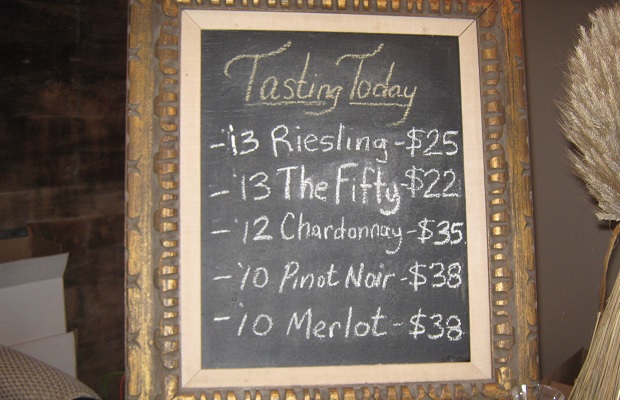 Tasting Today
- '13 Riesling - $25
- '13 The Fifty - $22
- '12 Chardonnay - $35
- '10 Pinot Noir - $38
- '10 Merlot - $38